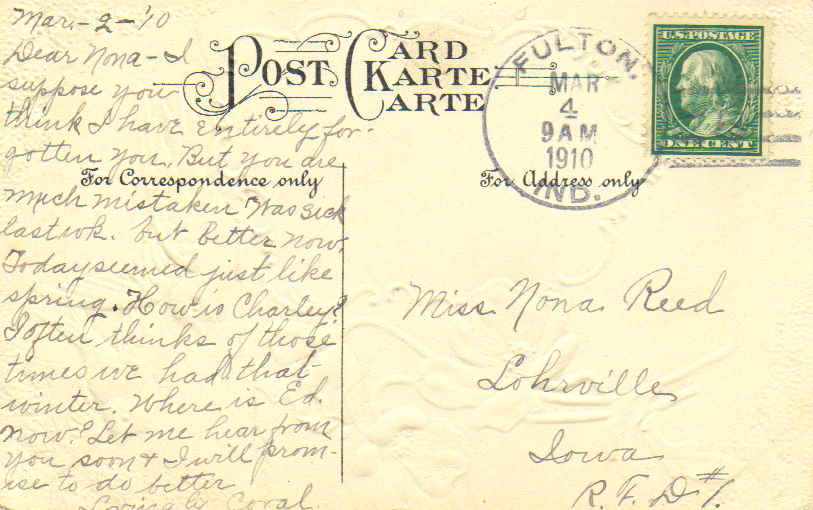 Mar.-2-'10
Dear Nona-I
suppose you
think I have entirely for-
gotten you. But you are
much mistaken Was sick
last wk. but better now.
Today seemed just like
spring. How is Charley?
I often thinks of those
times we had that
winter. Where is Ed.
now? Let me hear from
you soon + I will prom-
ise to do better
Lovingly Coral
POST CARD
KARTE
CARTE
For Correspondence only
For Address only
FULTON.
MAR
4
9AM
1910
IND.
U.S. POSTAGE
ONE CENT
Miss Nona Reed
Lohrville
Iowa
R.F.D#1.